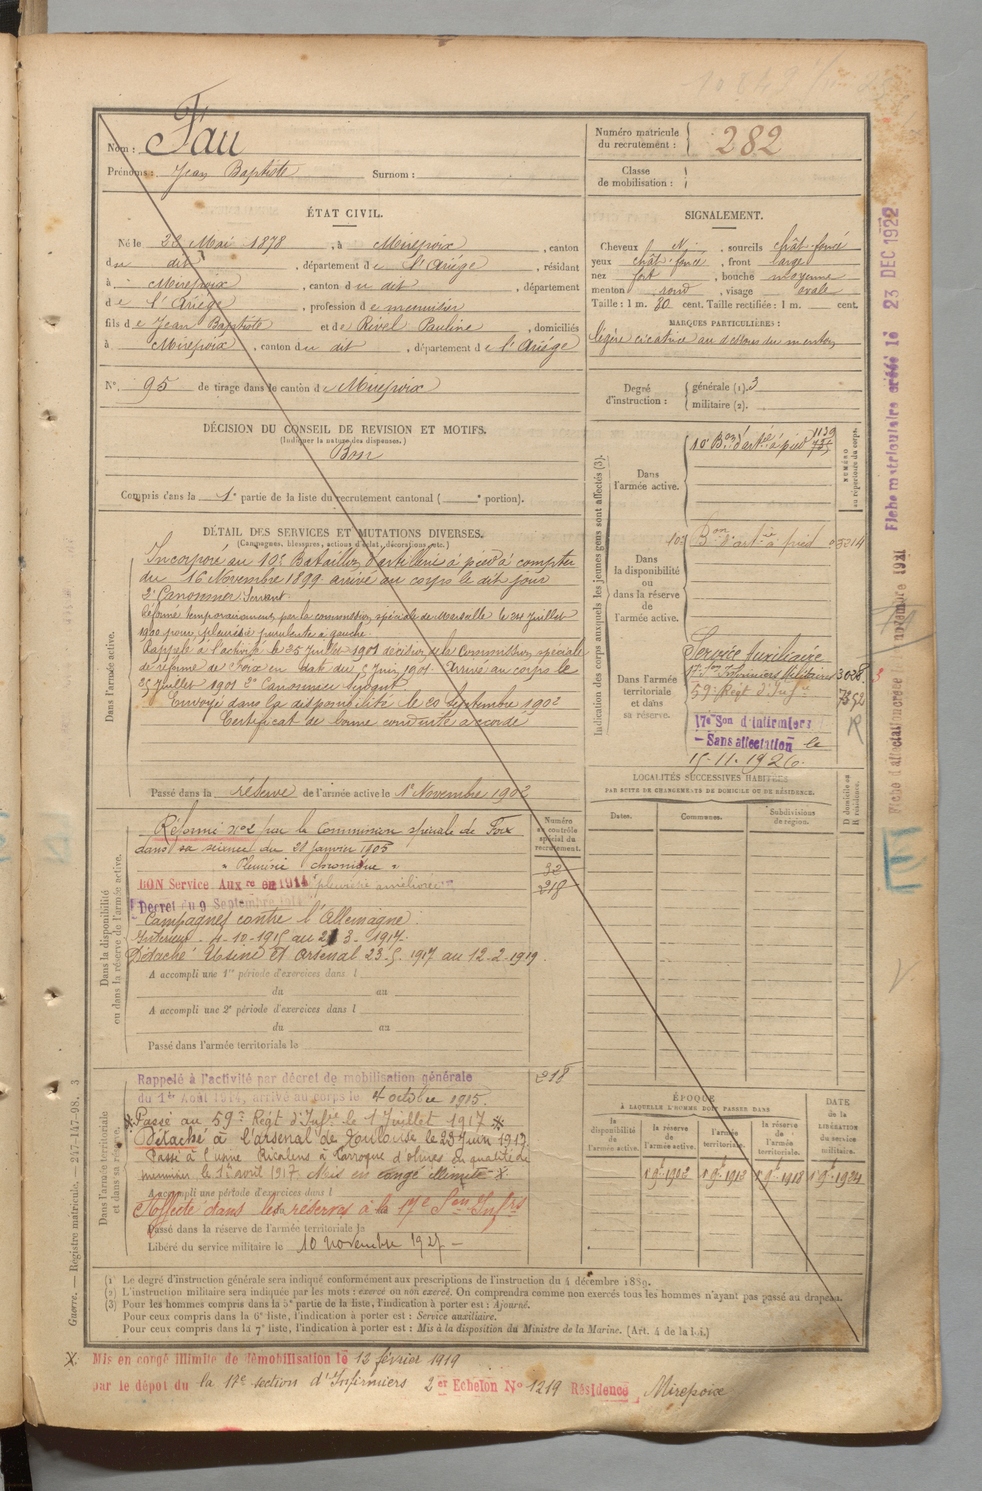 Nom : Fau
Prénoms : Jean Baptiste Surnom :
Numéro matricule du recrutement : 282
Classe de mobilisation :
ÉTAT CIVIL.
Né le 20 Mai 1878, à Mirepoix, canton
du dit, département de l'Ariége, résidant
à Mirepoix, canton du dit, département
de l'Ariége, profession de menuisier
fils de Jean Baptiste et de Rivel Pauline, domiciliés
à Mirepoix, canton du dit, département de l'Ariége
N° 95 de tirage dans le canton de Mirepoix
SIGNALEMENT.
Cheveux N. sourcils chât-foncé
yeux chât-foncé, front large
nez fort, bouche moyenne
menton rond, visage ovale
Taille : 1 m. 80 cent. Taille rectifiée : 1 m. cent.
MARQUES PARTICULIÈRES :
légère cicatrice au dessous du menton
Degré d'instruction : générale (1). 3
militaire (2).
DÉCISION DU CONSEIL DE REVISION ET MOTIFS.
(Indiquer la nature des dispenses.)
Bon
Compris dans la 1e partie de la liste du recrutement cantonal ( e portion).
DÉTAIL DES SERVICES ET MUTATIONS DIVERSES.
(Campagnes, blessures, actions d'éclat, décorations, etc.)
Dans l'armée active.
Incorporé au 10e Bataillon d'artillerie à pied à compter
du 16 Novembre 1899 arrivé au corps le dit jour
2e Canonnier Servant
Réformé temporairement par la commission spéciale de Marseille le 24 Juillet
1900 pour pleurésie purulente à gauche.
Rappelé à l'activité le 25 Juillet 1901 décision de la Commission spéciale
de réforme de Foix en date du 5 Juin 1901. Arrivé au corps le
25 Juillet 1901 2e Canonnier Servant
Envoyé dans la disponibilité le 20 Septembre 1902
Certificat de bonne conduite accordé
Passé dans la réserve de l'armée active le 1er Novembre 1902
Indication des corps auxquels les jeunes gens sont affectés (3).
NUMÉRO au répertoire du corps.
Dans l'armée active.
10e Bon d'artie à pied 1139
Dans la disponibilité ou dans la réserve de l'armée active.
10e Bon d'artie à pied 03214
Dans l'armée territoriale et dans sa réserve.
Service Auxiliaire
17e Son Infirmiers Militaires 3038
59e Régt d'Infie 7852
17e Son d'infirmiers
- Sans affectation le
15-11-1926.
R
LOCALITÉS SUCCESSIVES HABITÉES
PAR SUITE DE CHANGEMENTS DE DOMICILE OU DE RÉSIDENCE.
Dates. Communes. Subdivisions de région. D domicile ou R résidence.
Dans la disponibilité ou dans la réserve de l'armée active.
Numéro au contrôle spécial du recrutement.
Réformé n°2 par la Commission spéciale de Foix
dans sa séance du 21 janvier 1905
" Pleurésie chronique "
32
BON Service Auxre en 1914 "pleurésie améliorée"
218
Décret du 9 Septembre 1914
Campagnes contre l'Allemagne
Intérieur 4-10-1915 au 3-1917.
Détaché Usine et Arsenal 23-5-1917 au 12-2-1919.
A accompli une 1re période d'exercices dans l
du au
A accompli une 2e période d'exercices dans l
du au
Passé dans l'armée territoriale le
Dans l'armée territoriale et dans sa réserve.
218
Rappelé à l'activité par décret de mobilisation générale
du 1er Août 1914, arrivé au corps le 4 octobre 1915.
Passé au 59e Régt d'Infie le 1 Juillet 1917
Détaché à l'arsenal de Toulouse le 23 Juin 1917
Passé à l'usine Ricalens à Larroque d'olmes en qualité de
menuisier le 1er avril 1917. Mis en congé illimité X
A accompli une période d'exercices dans l
Affecté dans les réserves à la 17e Son Infirs
Passé dans la réserve de l'armée territoriale le
Libéré du service militaire le 10 novembre 1927 -
ÉPOQUE
À LAQUELLE L'HOMME DOIT PASSER DANS
la disponibilité de l'armée active. la réserve de l'armée active. l'armée territoriale. la réserve de l'armée territoriale.
DATE de la LIBÉRATION du service militaire.
1902 1912 1918 1924
(1) Le degré d'instruction générale sera indiqué conformément aux prescriptions de l'instruction du 4 décembre 1889.
(2) L'instruction militaire sera indiquée par les mots : exercé ou non exercé. On comprendra comme non exercés tous les hommes n'ayant pas passé au drapeau.
(3) Pour les hommes compris dans la 5e partie de la liste, l'indication à porter est : Ajourné.
Pour ceux compris dans la 6e liste, l'indication à porter est : Service auxiliaire.
Pour ceux compris dans la 7e liste, l'indication à porter est : Mis à la disposition du Ministre de la Marine. (Art. 4 de la loi.)
X. Mis en congé illimité de démobilisation le 13 février 1919
par le dépôt du la 17e section d'Infirmiers 2er Echelon N° 1219 Résidence Mirepoix
Guerre. — Registre matricule. — 247-147-98. 3
Fiche matriculaire créée le 23 DEC 1922